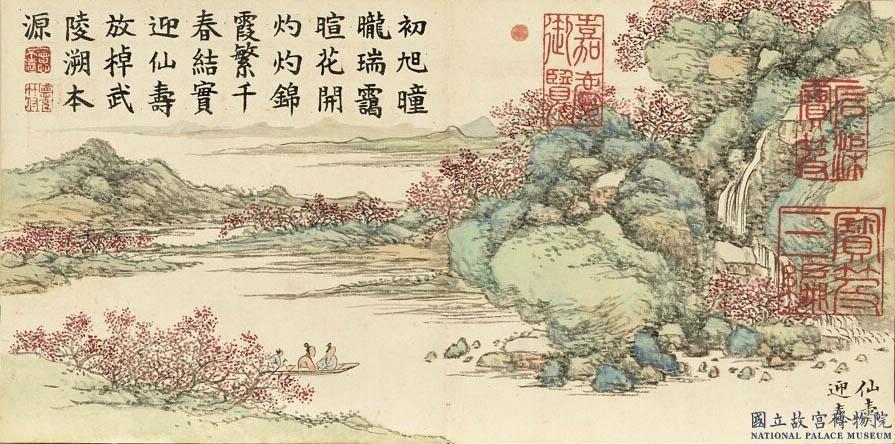 初旭曈
曨瑞靄
暄花開
灼灼錦
霞繁千
春結實
迎仙壽
放棹武
陵溯本
源
嘉慶
御覽
石渠
寶笈
寶笈
三編
仙壽
迎春
國立故宮博物院
NATIONAL PALACE MUSEUM